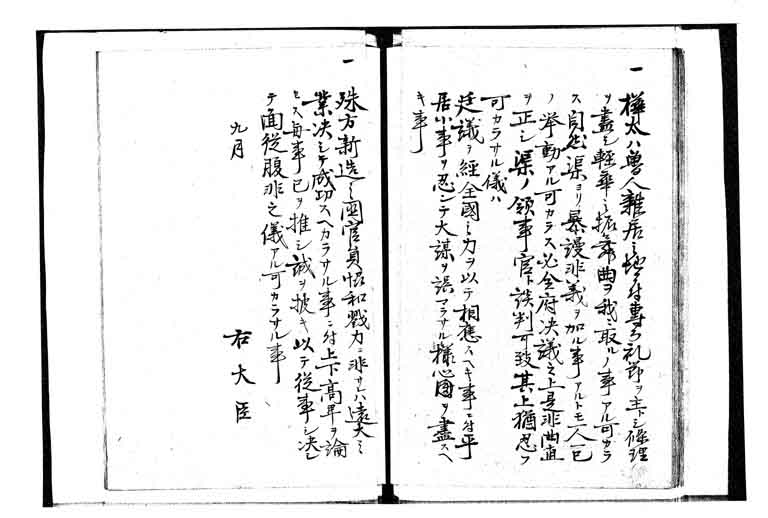 一
樺太ハ魯人雜居之地ニ付專ラ礼節ヲ主トシ條理
ヲ盡シ輕率之振舞曲ヲ我ニ取ルノ事アル可カラ
ス自然渠ヨリ暴謾非義ヲ加ル事アルトモ一人一已
ノ挙動アル可カラス必全府决議之上是非曲直
ヲ正シ渠ノ領事官ト談判可致其上猶忍フ
可カラサル儀ハ
廷議ヲ經全國之力ヲ以テ相應スヘキ事ニ付平
居小事ヲ忍ンテ大謀ヲ誤マラサル様心圖ヲ盡スヘ
キ事
一
殊方新造之国官員協和戮力ニ非サレハ遠大之
業决シテ成功スヘカラサル事ニ付上下高卑ヲ論
セス毎事已ヲ推シ誠ヲ披キ以テ從事シ决シ
テ面從腹非之儀アル可カラサル事
九月
右大臣